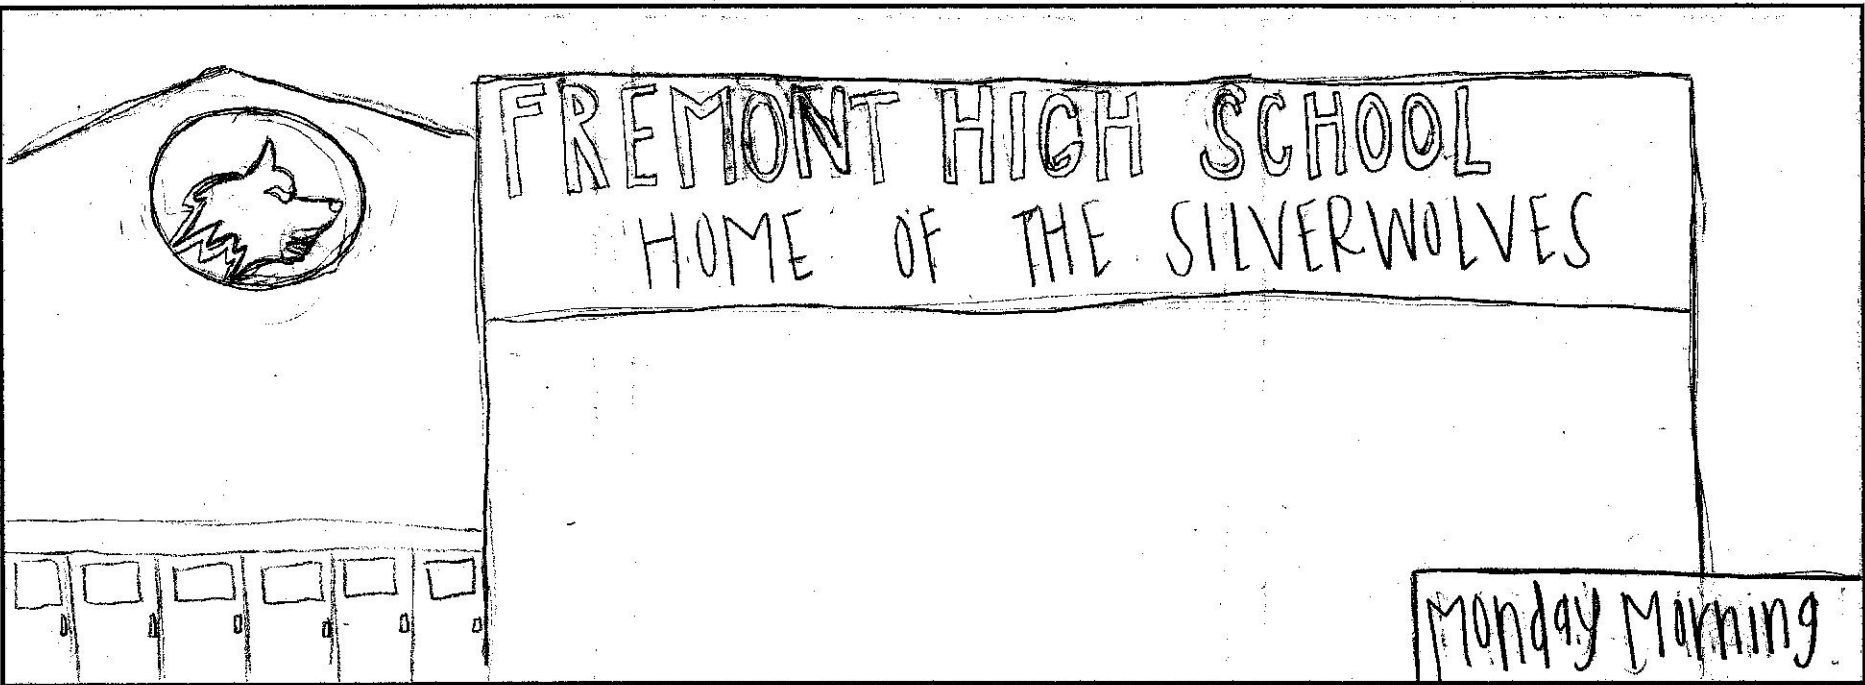 FREMONT HIGH SCHOOL
HOME OF THE SILVERWOLVES
Monday Morning